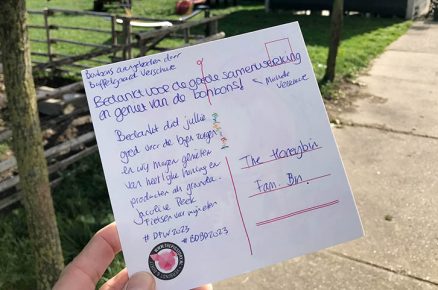 Bonbons aangeboden door
Buffelgaard Verschure
Bedankt voor de goede samenwerking
en geniet van de bonbons!
Mariska
Verschure
Bedankt dat jullie
goed voor de bijen zorgen
en wij mogen genieten
van heerlijke honing en
producten als granola.
Jacoline Reek
Fietsen voor mijn eten
#DFW2023 #BDBD2023
The Honeybin
Fam. Bin